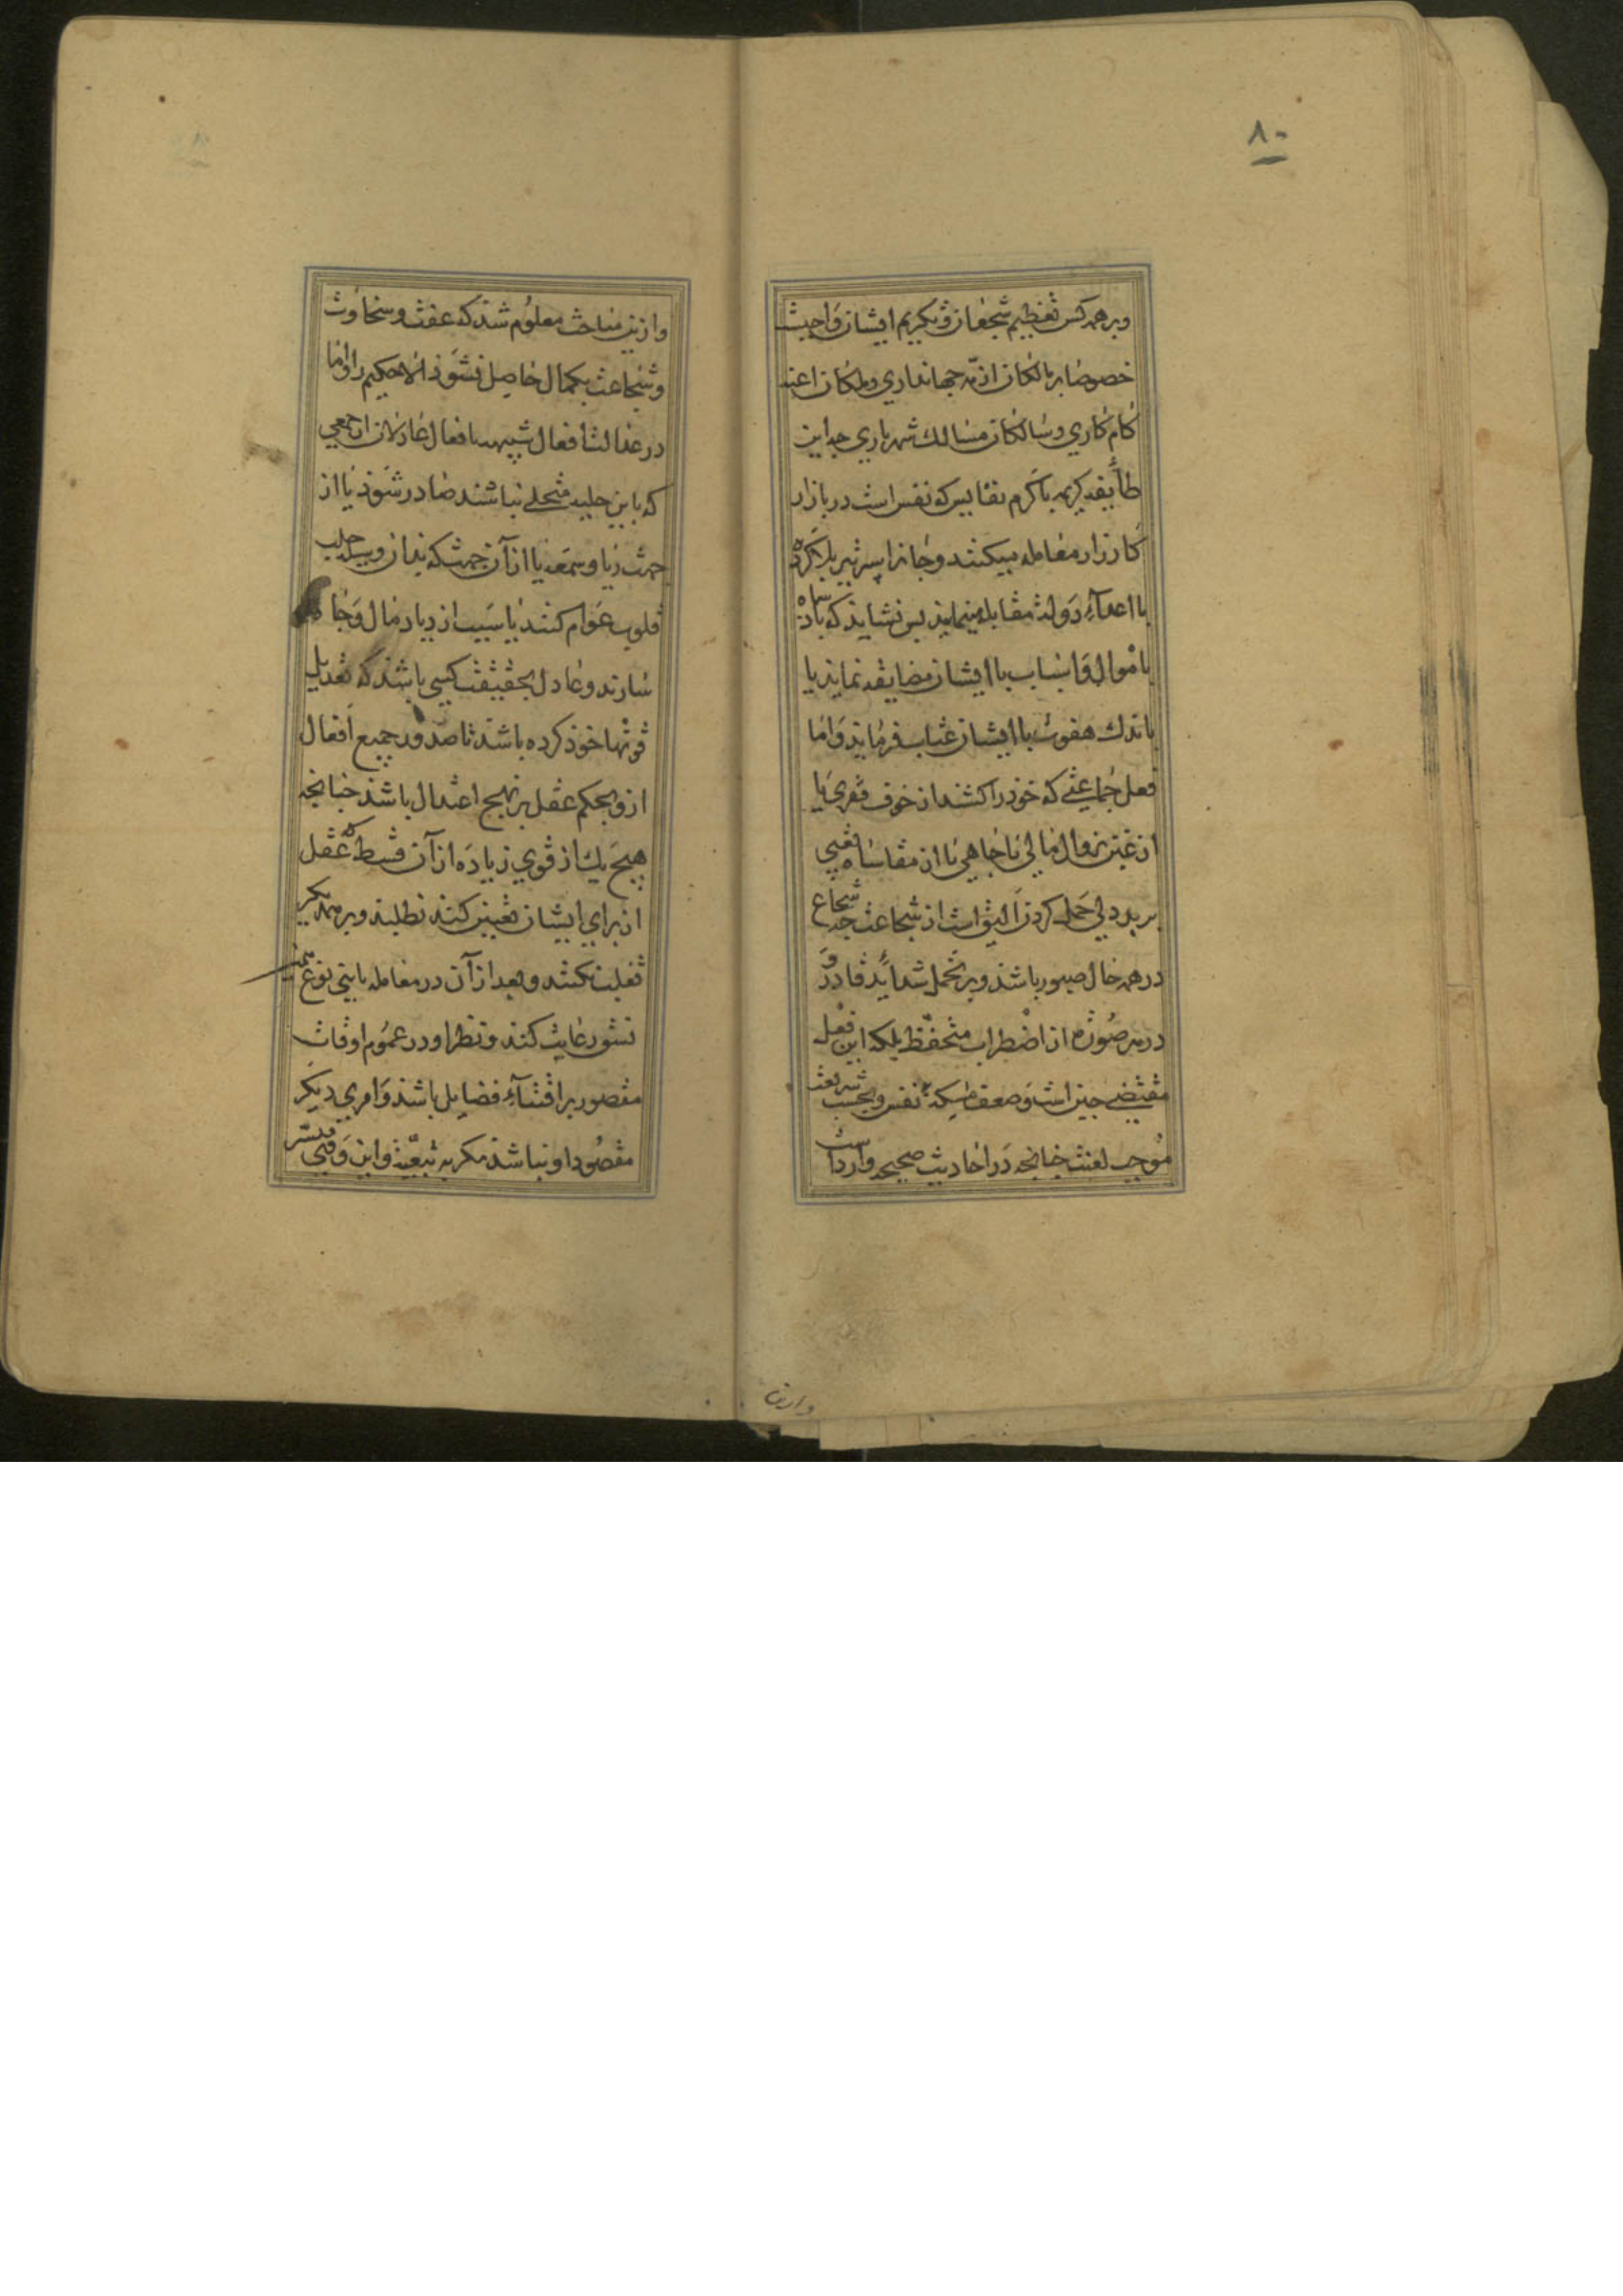 ۸۰
وبرهمه کس تعظیم شجعان و تکریم ایشان واجبست
خصوصا بر مالکان ازمّه جهانداری وملکان اعنه
کام کاری وسالکان مسالک شهریاری چه این
طایفه کریمه باکرم نفایس که نفس است در بازار
کارزار معامله میکنند وجانرا سپر تیر بلا کرده
با اعداء دولت مقابله مینمایند بس نشاید که بادشاه
باموال واسباب باایشان مضایقه نماید یا
باندک هفوت باایشان عتاب فرماید واما
فعل جماعتی که خوذ را کشند از خوف فقری یا
از غبن زوال مالی یا جاهی یا از مقاساه تعبی
بر بددلی حمل کردن الیق است از شجاعت چه شجاع
در همه حال صبور باشذ وبر تحمل شداید قادر و
در هر صورة از اضطراب متحفظ بلکه این فعل
مقتضی جبن است وضعف نفس وبحسب شریعت
موجب لعنت چنانچه در احادیث صحیحه وارداست
وازین
وازین مباحث معلوم شذ که عفت وسخاوت
وشجاعت بکمال حاصل نشوذ الا حکیم را واما
در عدالت افعال شبیهه بافعال عادلان از جمعی
که باین حلیه متحلی نباشند صادر شوذ یا از
جهت ریا وسمعه یا از آن جهت که بدان وسیله جلب
قلوب عوام کنند یا سبب ازدیاد مال وجاه
سازند وعادل بحقیقت کسی باشذ که تعدیل
قوتها خوذ کرده باشذ تا صدور جمیع افعال
ازو بحکم عقل بر نهج اعتدال باشذ چنانچه
هیچ یک از قوی زیاده از آن قسط که عقل
از برای ایشان تعیین کند نطلبد وبر همدیگر
تغلب نکنند وبعد از آن در معامله بابنی نوع همین
نسق رعایت کند ونظر او در عموم اوقات
مقصور بر اقتناء فضایل باشذ وامری دیگر
مقصود او نباشذ مگر به تبعیّت واین وقتی میسّر